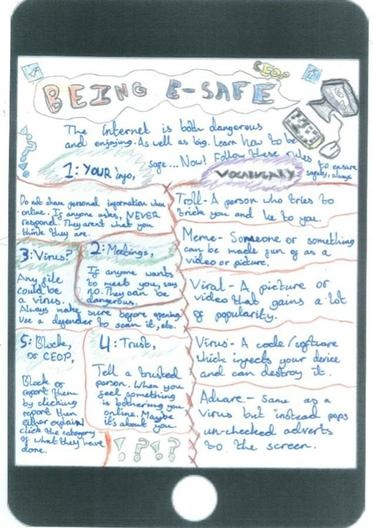 CEOP
BEING E-SAFE
The Internet is both dangerous
and enjoying. As well as big. Learn how to be
safe...Now! Follow these rules to ensure
safety, always
1: YOUR info,
Do not share personal information when
online. If anyone asks, NEVER
respond. They arent what you
think they are.
2: Meetings,
If anyone wants
to meet you, say
no. They can be
dangerous.
3: Virus?
Any file
could be
a virus.
Always make sure before opening.
Use a defender to scan it, etc.
5: Block,
or CEOP,
Block or
report them
by clicking
report then
either explain
click the category
of what they have
done.
4: Trust,
Tell a trusted
person. When you
see something
is bothering you
online. Maybe
it's about you
!?!?
VOCABULARY
Troll- A person who tries to
trick you and lie to you.
Meme- Someone or something
can be made fun of as a
video or picture.
Viral- A picture or
video that gains a lot
of popularity.
Virus- A code/software
which infects your device
and can destroy it.
Adware- Same as a
virus but instead pops
un-checked adverts
to the screen.